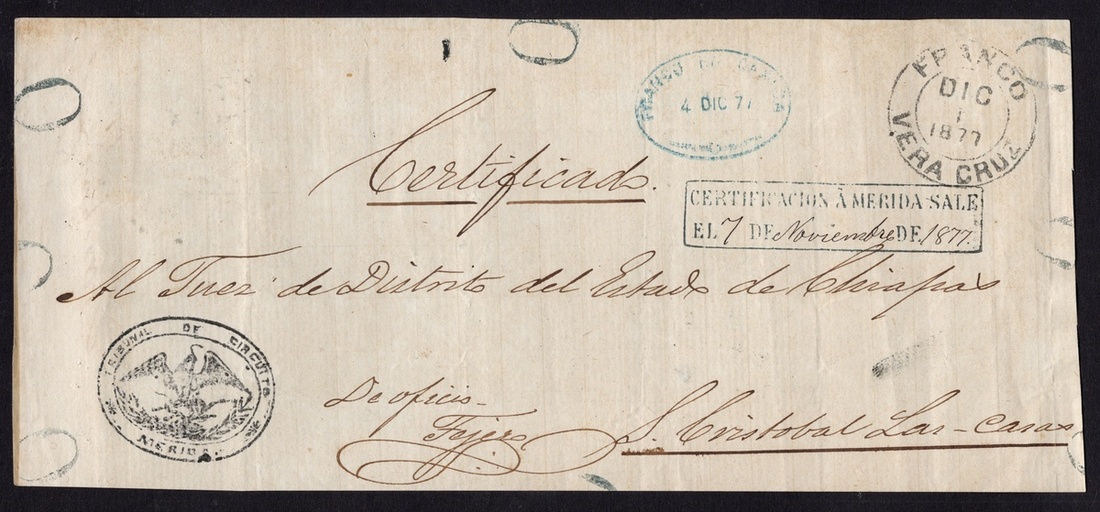 FRANCO
DIC
1
1877
VERA CRUZ
FRANCO EN
4 DIC 77
Certificado.
CERTIFICACION Á MERIDA SALE
EL 7 DE Noviembre DE 1877.
Al Juez de Distrito del Estado de Chiapas
TRIBUNAL DE CIRCUITO
MERIDA
De oficio
S. Cristobal Las-casas